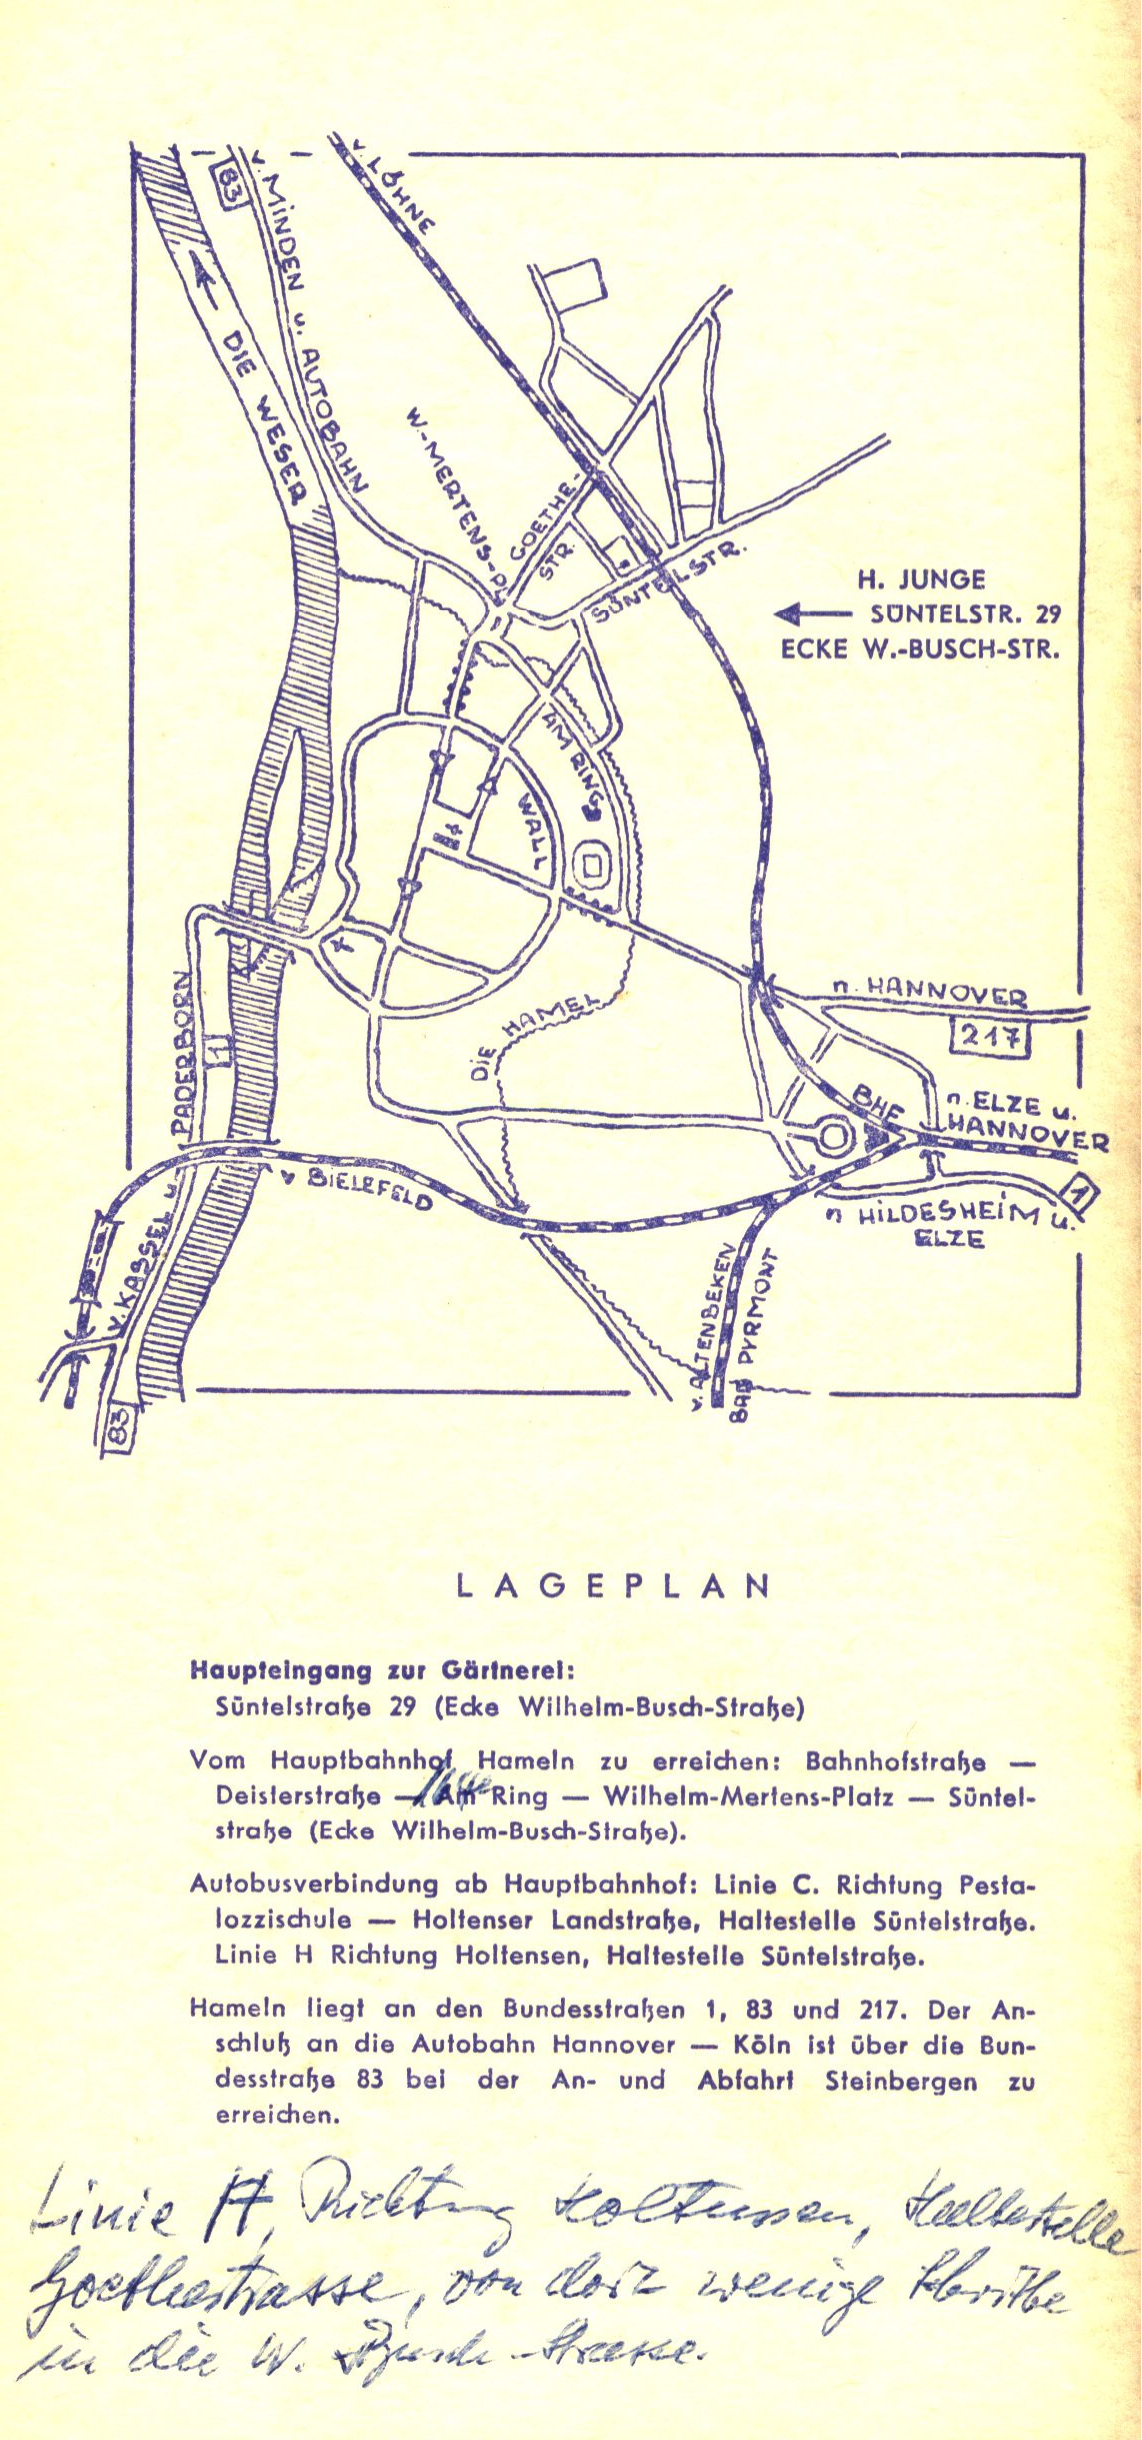 83
v. MINDEN u. AUTOBAHN
v. LÖHNE
DIE WESER
W.-MERTENS-PL.
GOETHE-
STR.
SÜNTELSTR.
H. JUNGE
SÜNTELSTR. 29
ECKE W.-BUSCH-STR.
AM RING
WALL
n. HANNOVER
217
DIE HAMEL
v. KASSEL u. PADERBORN
1
BHF
n. ELZE u.
HANNOVER
v BIELEFELD
1
n HILDESHEIM u.
ELZE
v. ALTENBEKEN
BAD PYRMONT
83
LAGEPLAN
Haupteingang zur Gärtnerei:
Süntelstraße 29 (Ecke Wilhelm-Busch-Straße)
Vom Hauptbahnhof Hameln zu erreichen: Bahnhofstraße —
Deisterstraße — Am Ring — Wilhelm-Mertens-Platz — Süntel-
straße (Ecke Wilhelm-Busch-Straße).
Autobusverbindung ab Hauptbahnhof: Linie C. Richtung Pesta-
lozzischule — Holtenser Landstraße, Haltestelle Süntelstraße.
Linie H Richtung Holtensen, Haltestelle Süntelstraße.
Hameln liegt an den Bundesstraßen 1, 83 und 217. Der An-
schluß an die Autobahn Hannover — Köln ist über die Bun-
desstraße 83 bei der An- und Abfahrt Steinbergen zu
erreichen.
Linie H, Richtung Holtensen, Haltestelle
Goethestrasse, von dort wenige Schritte
in die W. Busch-Strasse.